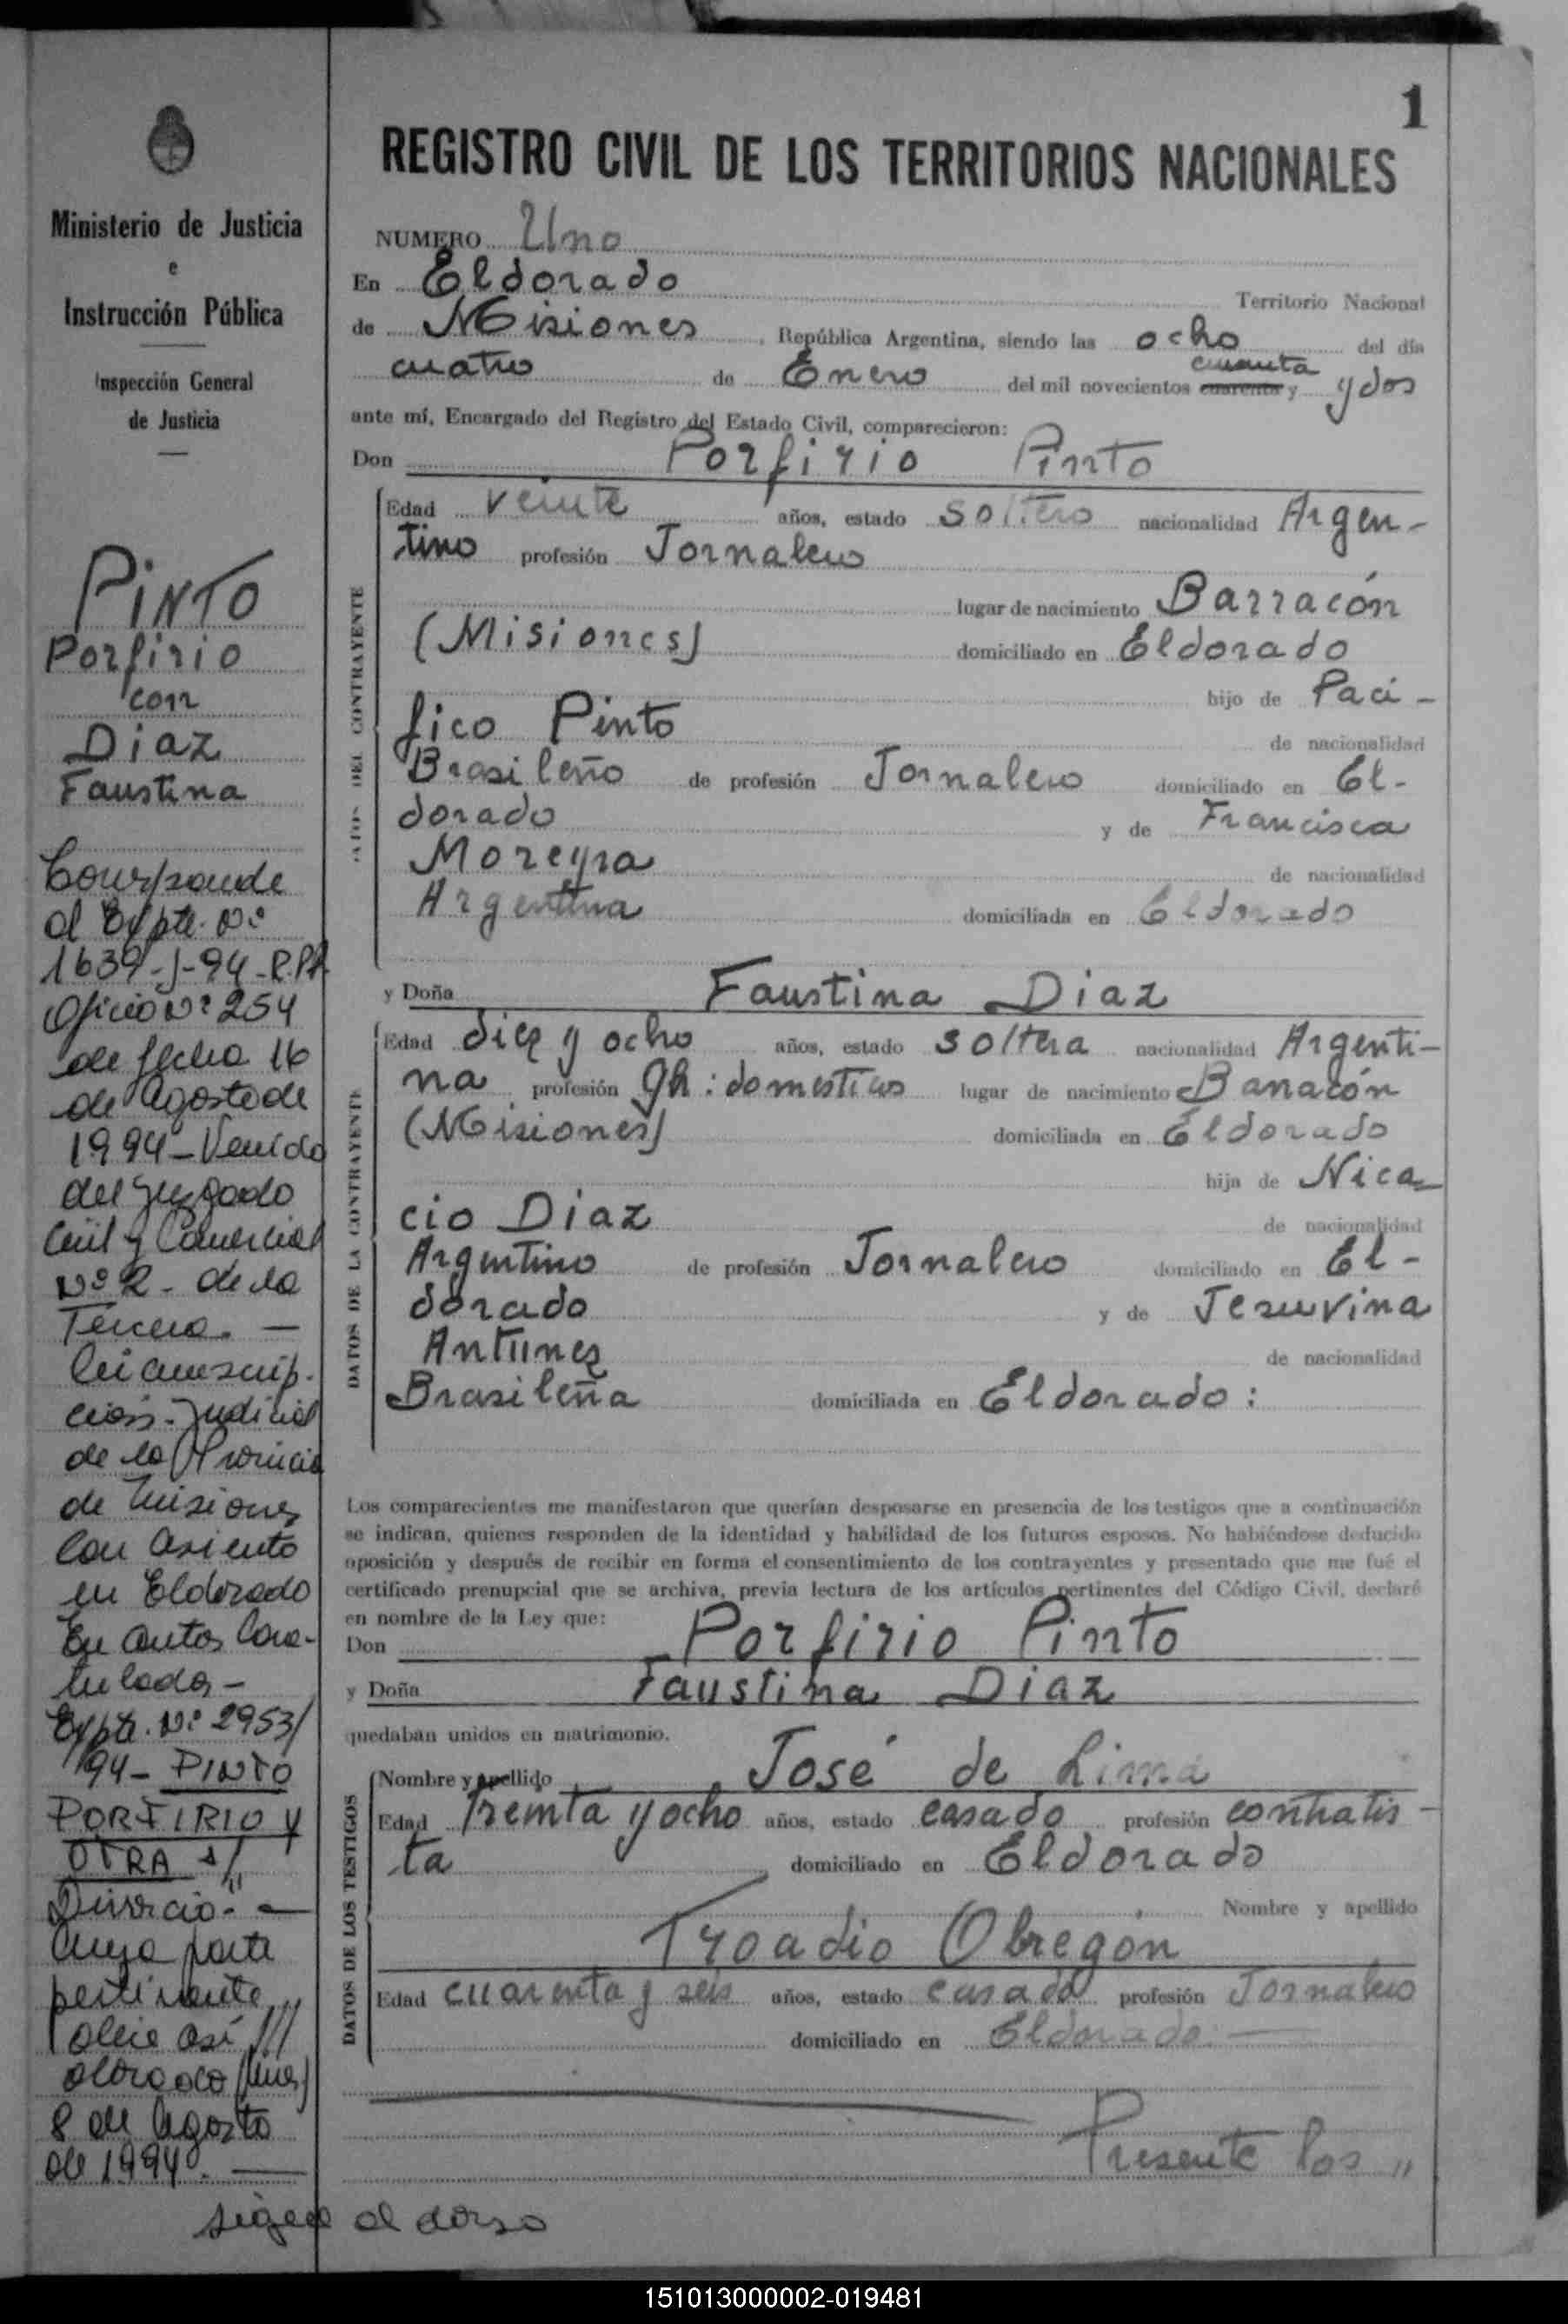 1
REGISTRO CIVIL DE LOS TERRITORIOS NACIONALES
Ministerio de Justicia
e
Instrucción Pública
Inspección General
de Justicia
PINTO
Porfirio
con
Diaz
Faustina
Corresponde
al Expte. Nº
1639-J-94-R.P.
Oficio Nº 254
de fecha 16
de Agosto de
1994 - Venido
del Juzgado
Civil y Comercial
Nº 2 - de la
Tercera. —
Circunscrip-
ción - Judicial
de la Provincia
de Misiones
con asiento
en Eldorado
En autos Cara-
tulados -
Expte. Nº 2953/
94 - PINTO
PORFIRIO Y
OTRA s/
Divorcio - —
Cuya parte
pertinente
dice así ///
8 de Agosto
de 1994. —
sigue al dorso
NUMERO Uno
En Eldorado Territorio Nacional
de Misiones, República Argentina, siendo las ocho del día
cuatro de Enero del mil novecientos cuarenta y cincuenta y dos
ante mí, Encargado del Registro del Estado Civil, comparecieron:
Don Porfirio Pinto
DATOS DEL CONTRAYENTE
Edad veinte años, estado soltero nacionalidad Argen-
tino profesión Jornalero
lugar de nacimiento Barracón
(Misiones) domiciliado en Eldorado
hijo de Paci-
fico Pinto de nacionalidad
Brasileño de profesión Jornalero domiciliado en El-
dorado y de Francisca
Moreyra de nacionalidad
Argentina domiciliada en Eldorado
y Doña Faustina Diaz
DATOS DE LA CONTRAYENTE
Edad diez y ocho años, estado soltera nacionalidad Argenti-
na profesión qh: domesticos lugar de nacimiento Barracón
(Misiones) domiciliada en Eldorado
hija de Nica-
cio Diaz de nacionalidad
Argentino de profesión Jornalero domiciliado en El-
dorado y de Jesuvina
Antunez de nacionalidad
Brasileña domiciliada en Eldorado:
Los comparecientes me manifestaron que querían desposarse en presencia de los testigos que a continuación
se indican, quienes responden de la identidad y habilidad de los futuros esposos. No habiéndose deducido
oposición y después de recibir en forma el consentimiento de los contrayentes y presentado que me fué el
certificado prenupcial que se archiva, previa lectura de los artículos pertinentes del Código Civil, declaré
en nombre de la Ley que:
Don Porfirio Pinto
y Doña Faustina Diaz
quedaban unidos en matrimonio.
DATOS DE LOS TESTIGOS
Nombre y apellido José de Lima
Edad treinta y ocho años, estado casado profesión contratis-
ta domiciliado en Eldorado
Nombre y apellido
Troadio Obregón
Edad cuarenta y seis años, estado casado profesión Jornalero
domiciliado en Eldorado. —
Presente los "
151013000002-019481